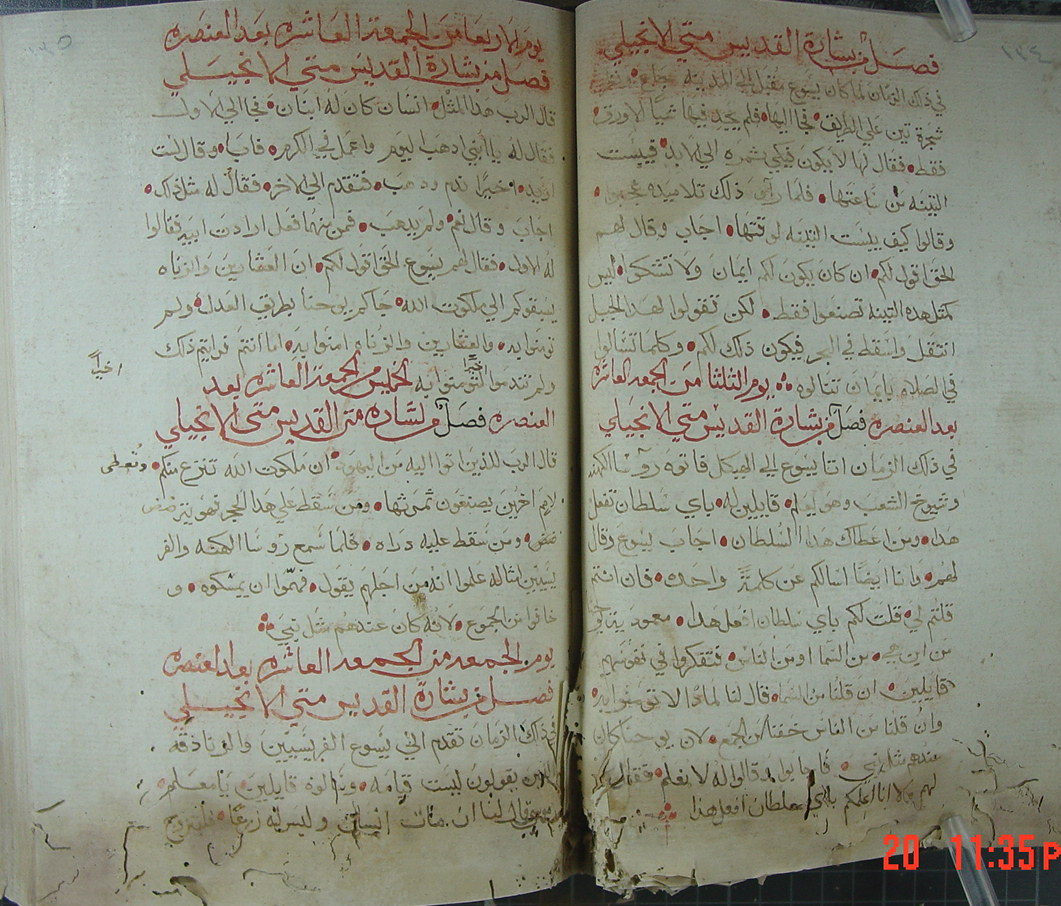 فصل من بشارة القديس متي الانجيلي
في ذلك الزمان لما كان يسوع مقبل الي المدينه جاع
شجرة تين علي الطريق • فجا اليها • فلم يجد فيها شيا الا ورق
فقط • فقال لها لا يكون فيكي ثمره الي الابد • فيبست
التينه من ساعتها • فلما راي ذلك تلاميده عجبوا •
وقالوا كيف يبست التينه لوقتها • اجاب وقال لهم
الحق اقول لكم • ان كان يكون لكم ايمان ولا تشكوا • ليس
كمثل هده التينه تصنعوا فقط • لكن تقولوا لهدا الجبل
انتقل واسقط في البحر فيكون ذلك لكم • وكلما تسالوا
في الصلاه بايمان تنالوه • يوم الثلثا من الجمعه العاشره
بعد العنصره فصل من بشارة القديس متي الانجيلي
في ذلك الزمان اتا يسوع الي الهيكل فاتوه روسا الكهنه
وشيوخ الشعب وهو يعلم • قايلين له • باي سلطان تفعل
هدا • ومن اعطاك هدا السلطان • اجاب يسوع وقال
لهم • وانا ايضا اسالكم عن كلمة واحده • فان انتم
قلتم لي • قلت لكم باي سلطان افعل هدا • معمودية يوح
من اين هي • من السما او من الناس • فتفكروا في نفوسهم
قايلين • ان قلنا من السما • قال لنا لمادا لا تومنوا به
وان قلنا من الناس خفنا من الجمع • لان يوحنا كان
عندهم مثل نبي • فاجابوا وقالوا له لا نعلم • فقال
لهم ولا انا اعلمكم باي سلطان افعل هدا
يوم الاربعا من الجمعة العاشره بعد العنصره
فصل من بشارة القديس متي الانجيلي
قال الرب هدا المثل • انسان كان له ابنان • فجا الي الاول
فقال له يا ابني ادهب اليوم واعمل في الكرم • فاجاب وقال لست
اريد • اخيرا ندم ودهب • فتقدم الي الاخر • فقال له مثل ذلك •
اجاب وقال نعم • ولم يدهب • فمن منهما فعل ارادت ابيه فقالوا
له الاول • فقال لهم يسوع الحق اقول لكم • ان العشارين والزناه
يسبقوكم الي ملكوت الله • جاكم يوحنا بطريق العدل • ولم
تومنوا به • والعشارين والزناه امنوا به • اما انتم فرايتم ذلك
اخيرا
ولم تندموا لتومنوا به الخميس من الجمعة العاشره بعد
العنصره فصل من بشاره متي القديس متي الانجيلي
قال الرب للذين اتوا اليه من اليهود • ان ملكوت الله تنزع منكم • وتعطي
لامم اخرين يصنعون ثمرتها • ومن سقط علي هدا الحجر فهو يترضض
ضض • ومن سقط عليه دراه • فلما سمع روسا الكهنه والفر
يسيين امثاله علموا انه من اجلهم يقول • فهموا ان يمسكوه • و
خافوا من الجموع • لانه كان عندهم مثل نبي
يوم الجمعه من الجمعه العاشره بعد العنصره
فصل من بشارة القديس متي الانجيلي
في ذلك الزمان تقدم الي يسوع الفريسيين والزنادقه
الذين يقولون ليست قيامه • وسالوه قايلين يا معلم •
موسي قال لنا ان مات انسان وليس له زرعا • فليتزوج
20 11:35 P